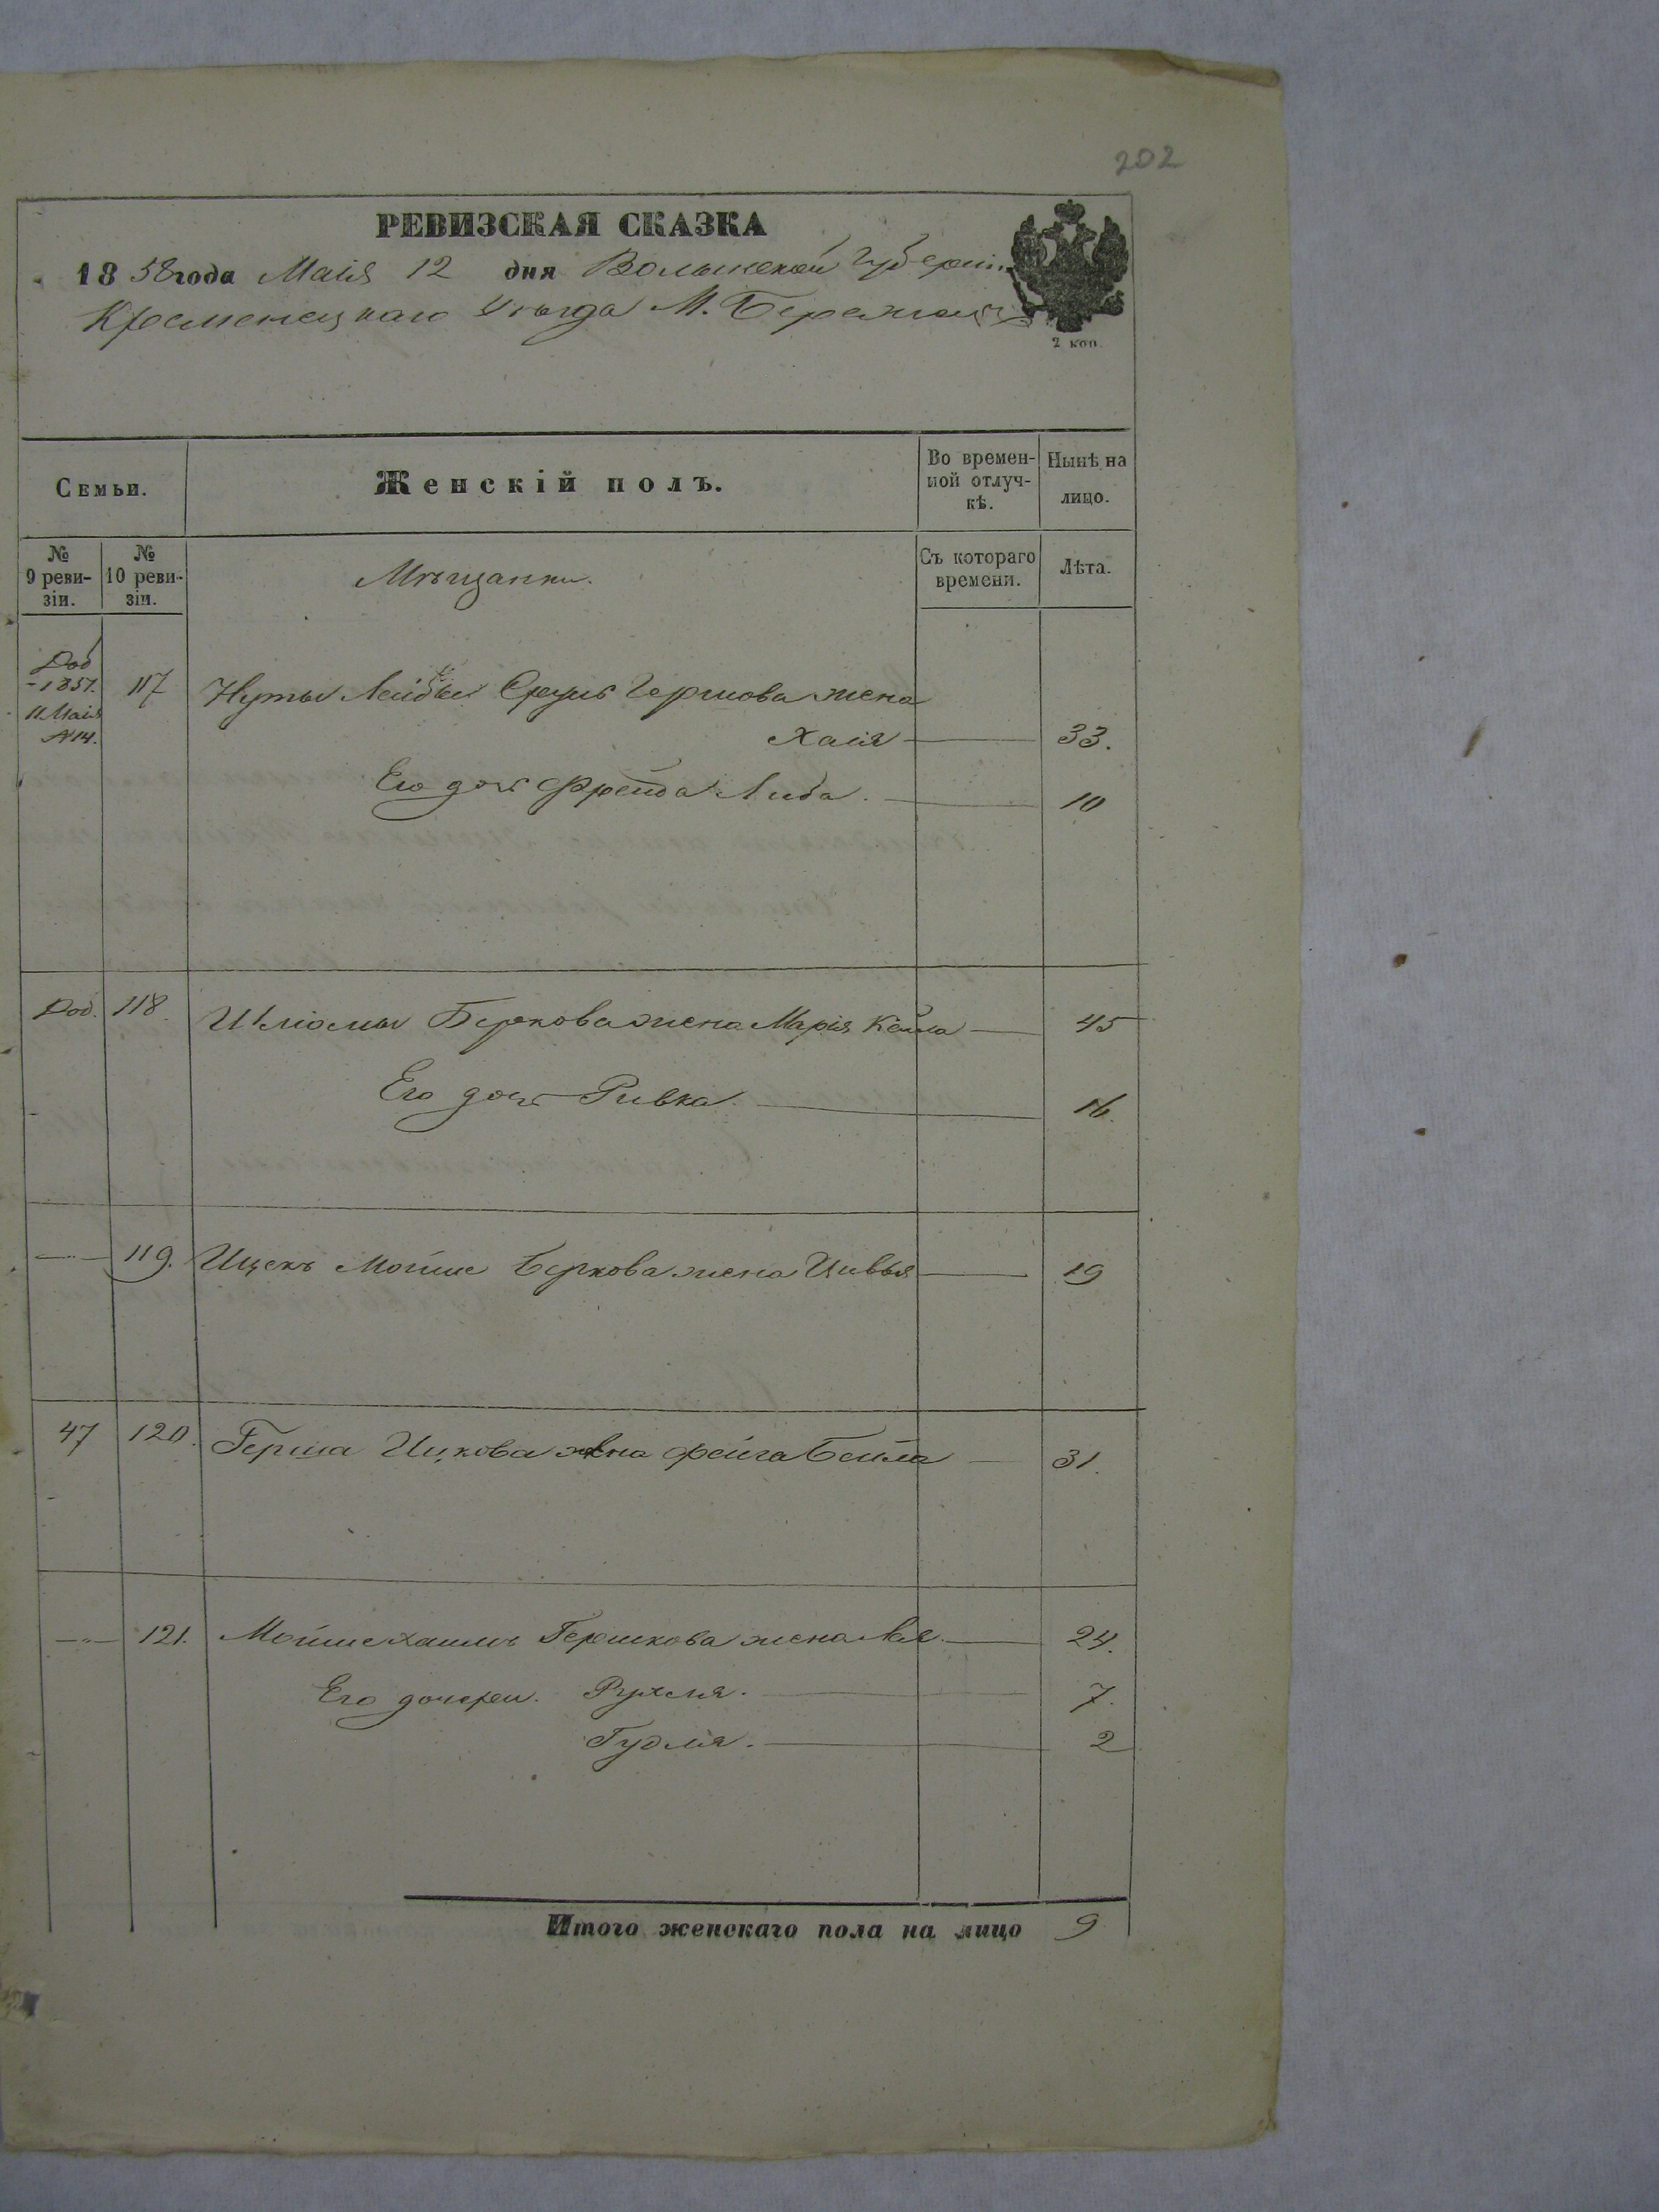 202
РЕВИЗСКАЯ СКАЗКА
1858 года Маія 12 дня Волынской Губерніи
Кременецкаго Уѣзда М. Бережецъ
2 коп.
Семьи.
Женскій полъ.
Во времен-
ной отлуч-
кѣ.
Нынѣ на
лицо.
№
9 реви-
зіи.
№
10 реви-
зіи.
Мѣщанки.
Съ котораго
времени.
Лѣта.
Доб
1851.
11 Маія
№ 14.
117 Нуты Лейбы Сруль Гершова жена
Хаія 33.
Его дочь Фрейда Либа. 10
Доб. 118. Шліомы Беркова жена Марія Кейла 45
Его дочь Ривка. 16.
119. Ицекъ Мойше Беркова жена Цивья 19
47 120. Герша Ицкова жена Фейга Бейла 31.
121. Мойше Хаимъ Гершкова жена Лея. 24.
Его дочери. Рухля. 7.
Гудля. 2
Итого женскаго пола на лицо 9